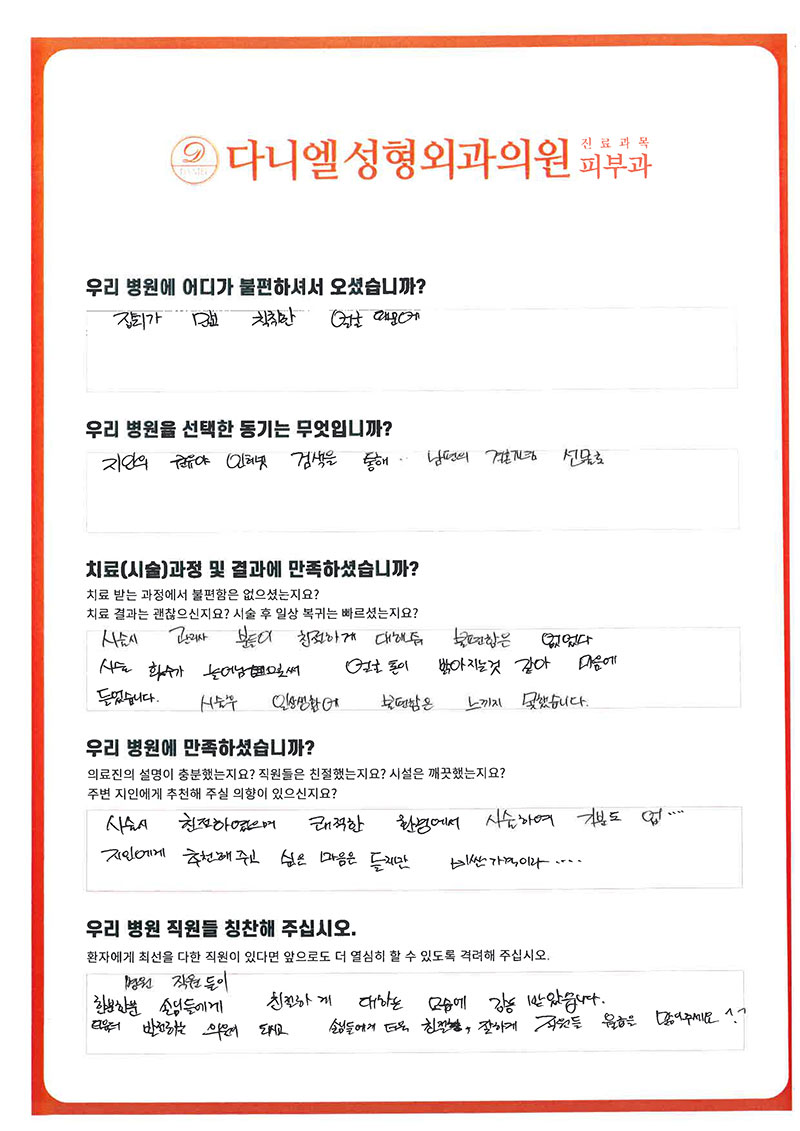 다니엘성형외과의원 진료과목 피부과
우리 병원에 어디가 불편하셔서 오셨습니까?
잡티가 많고 칙칙한 얼굴 때문에
우리 병원을 선택한 동기는 무엇입니까?
지인의 권유와 인터넷 검색을 통해.. 남편의 결혼기념 선물로
치료(시술)과정 및 결과에 만족하셨습니까?
치료 받는 과정에서 불편함은 없으셨는지요?
치료 결과는 괜찮으신지요? 시술 후 일상 복귀는 빠르셨는지요?
시술시 관리사 분들이 친절하게 대해줘 불편함은 없었다
시술 횟수가 늘어남으로써 얼굴 톤이 밝아지는것 같아 마음에
들었습니다. 시술후 일상생활에 불편함은 느끼지 못했습니다.
우리 병원에 만족하셨습니까?
의료진의 설명이 충분했는지요? 직원들은 친절했는지요? 시설은 깨끗했는지요?
주변 지인에게 추천해 주실 의향이 있으신지요?
시술시 친절하였으며 쾌적한 환경에서 시술하여 기분도 업....
지인에게 추천해주고 싶은 마음은 들지만 비싼가격이라....
우리 병원 직원들 칭찬해 주십시오.
환자에게 최선을 다한 직원이 있다면 앞으로도 더 열심히 할 수 있도록 격려해 주십시오.
병원 직원들이
한분한분 손님들에게 친절하게 대하는 모습에 감동 받았습니다.
더욱더 발전하는 의원이 되시고 손님들에게 더욱 친절함, 잘하게 직원들 월급은 많이주세요 ^.^